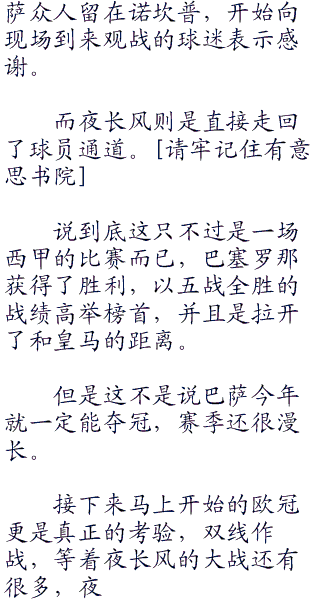 萨众人留在诺坎普，开始向
现场到来观战的球迷表示感
谢。
而夜长风则是直接走回
了球员通道。[请牢记住有意
思书院]
说到底这只不过是一场
西甲的比赛而已，巴塞罗那
获得了胜利，以五战全胜的
战绩高举榜首，并且是拉开
了和皇马的距离。
但是这不是说巴萨今年
就一定能夺冠，赛季还很漫
长。
接下来马上开始的欧冠
更是真正的考验，双线作
战，等着夜长风的大战还有
很多，夜